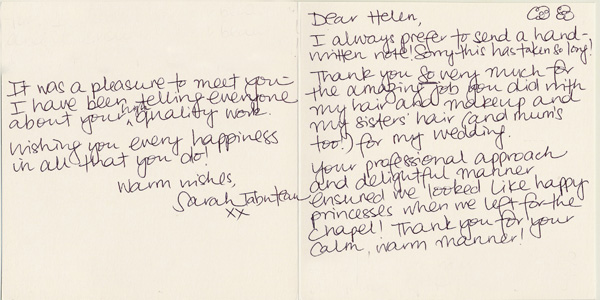 Dear Helen,
I always prefer to send a hand-
written note! Sorry this has taken so long!
Thank you so very much for
the amazing job you did with
my hair and makeup and
my sisters' hair (and mum's
too!) for my wedding.
Your professional approach
and delightful manner
ensured we looked like happy
princesses when we left for the
Chapel! Thank you for your
calm, warm manner!
It was a pleasure to meet you -
I have been telling everyone
about your high quality work.
Wishing you every happiness
in all that you do!
Warm wishes,
Sarah
xx